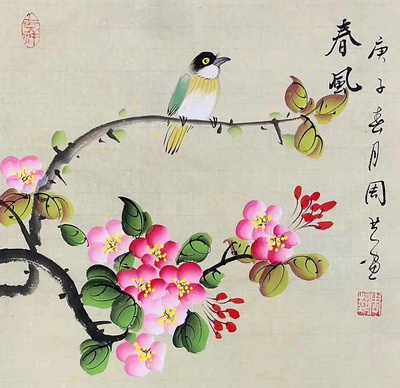 春風
庚子春月周芝画